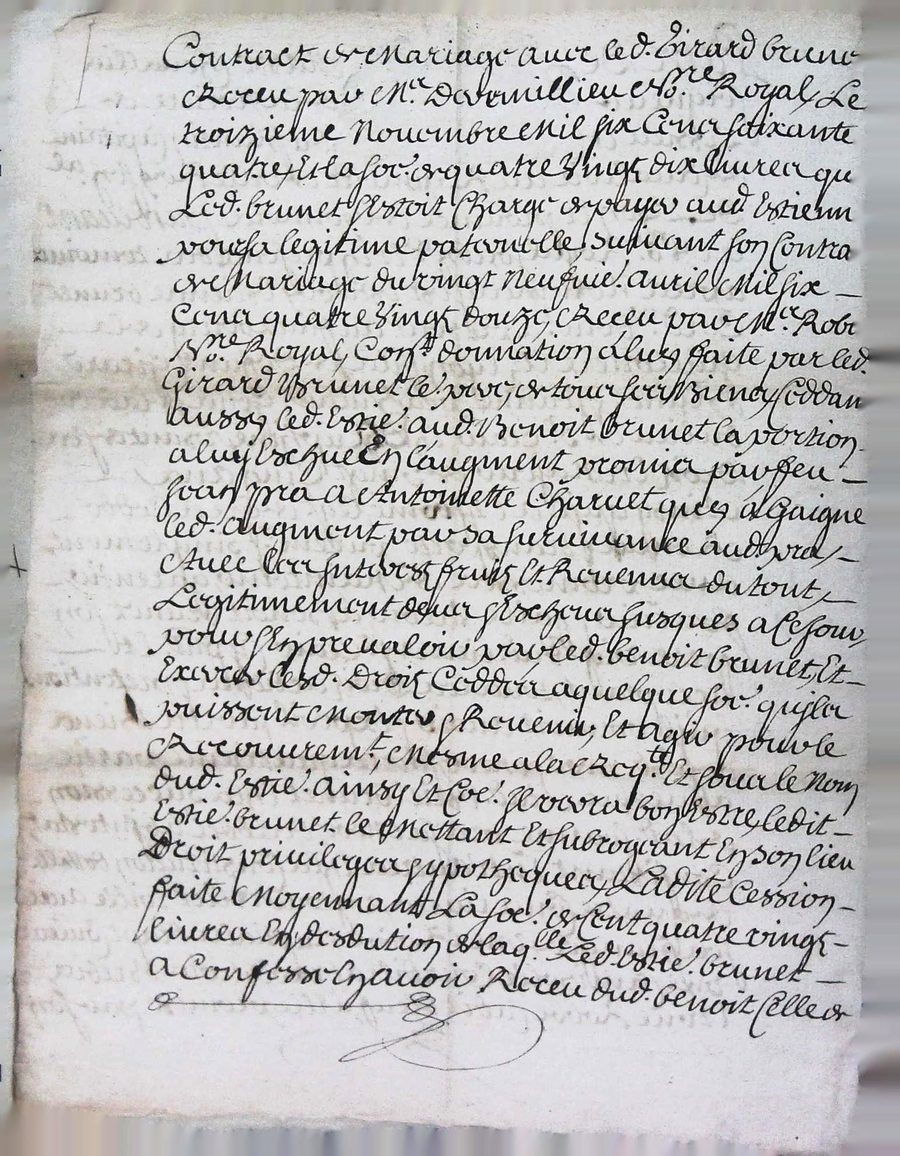 Contract de Mariage avec led. Girard brune
Receu par Me. Devermillieu No.re Royal, Le
troizieme Novembre Mil six Cens soixante
quatre, Et la so.e de quatre Vingt dix livres qu
Led. brunet s'estoit Charge de payer aud. Estienn
pour sa legitime paternelle, suivant son Contra
de Mariage du vingt Neufvie. avril Mil six _
Cens quatre Vingt douze, Receu par Me. Robe
No.re Royal, Con.t donnation a luy faite par led.
Girard Brunet le pere, de tous ses Biens, Ceddan
aussy led. Estie. aud. Benoit brunet la portion
a luy Escheue En l'augment promis par feu _
Jean pra a Antoinette Charvet quy a Gaigne
led. augment par sa survivance aud. pra, _
Avec les Interest fruis Et Revenus du tout, _
Legitimement deus & Escheus Jusques a Ce Jour,
pour s'En prevaloir par led. benoit brunet, Et _
Exercer lesd. Drois Ceddés a quelque so.e qu'Jls
puissent Monter & Revenir, Et agir pour le
Recouvrem.t, Mesme a la Req.te Et sous le Nom
dud. Estie. ainsy Et Co.e Jl verra bon Estre, ledit _
Estie. brunet le Mettant Et subrogeant En son lieu
Droit privileges hypotheques, Ladite Cession _
faite Moyennant La so.e de Cent quatre vingt _
livres En desdution de laq.lle Led. Estie. brunet _
a Confesse En avoir Receu dud. benoit Celle de